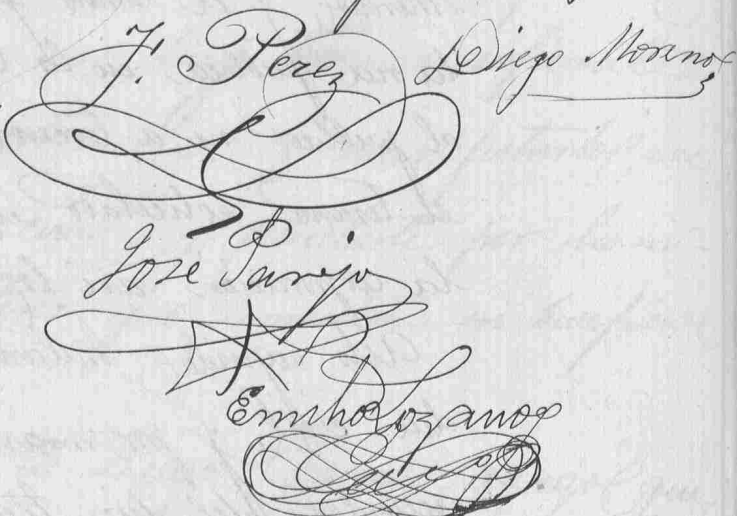 J. Perez Diego Moreno
Jose Parejo
Emilio Lozano